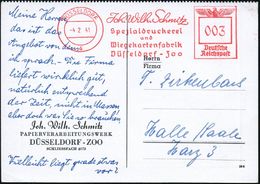 DÜSSELDORF
-4.2.41
Joh. Wilh. Schmitz
Spezialdruckerei
und
Wiegekartenfabrik
Düsseldorf-Zoo
003
Deutsche
Reichspost
Meine Herren
das ist das
Angebot von dem
ich sprach. Die Firma
liefert wirklich gut,
natürlich entsprechend
der Zeit, nicht in Massen
aber doch was Sie so brauchen
Joh. Wilh. Schmitz
PAPIERVERARBEITUNGSWERK
DÜSSELDORF-ZOO
Vielleicht liegt grade etwas
vor?
Herrn
Firma
Halle/Saale
Harz 3